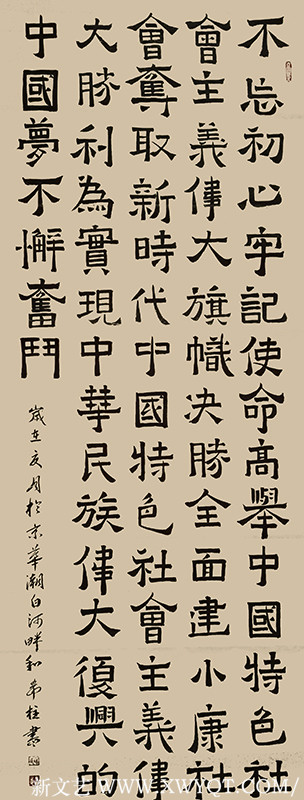 不忘初心牢記使命高舉中國特色社
會主義偉大旗幟决勝全面建小康社
會奪取新時代中國特色社會主義偉
大勝利為實現中華民族偉大復興的
中國夢不懈奮鬥
歲在亥月於京華潮白河畔和柱書
新文艺 WWW.XWYQT.COM/